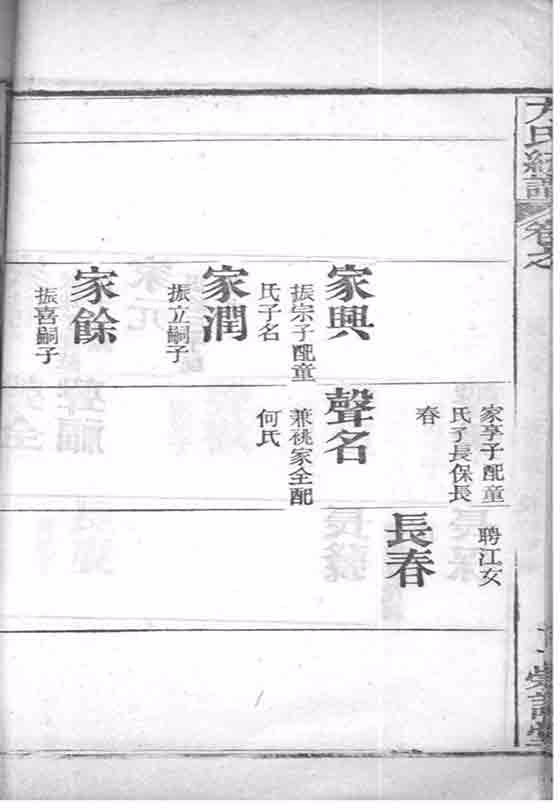 卷之
家興
振宗子配童
氏子名
家潤
振立嗣子
家餘
振喜嗣子
家享子配童
氏子長保長
春
聲名
兼祧家全配
何氏
聘江女
長春